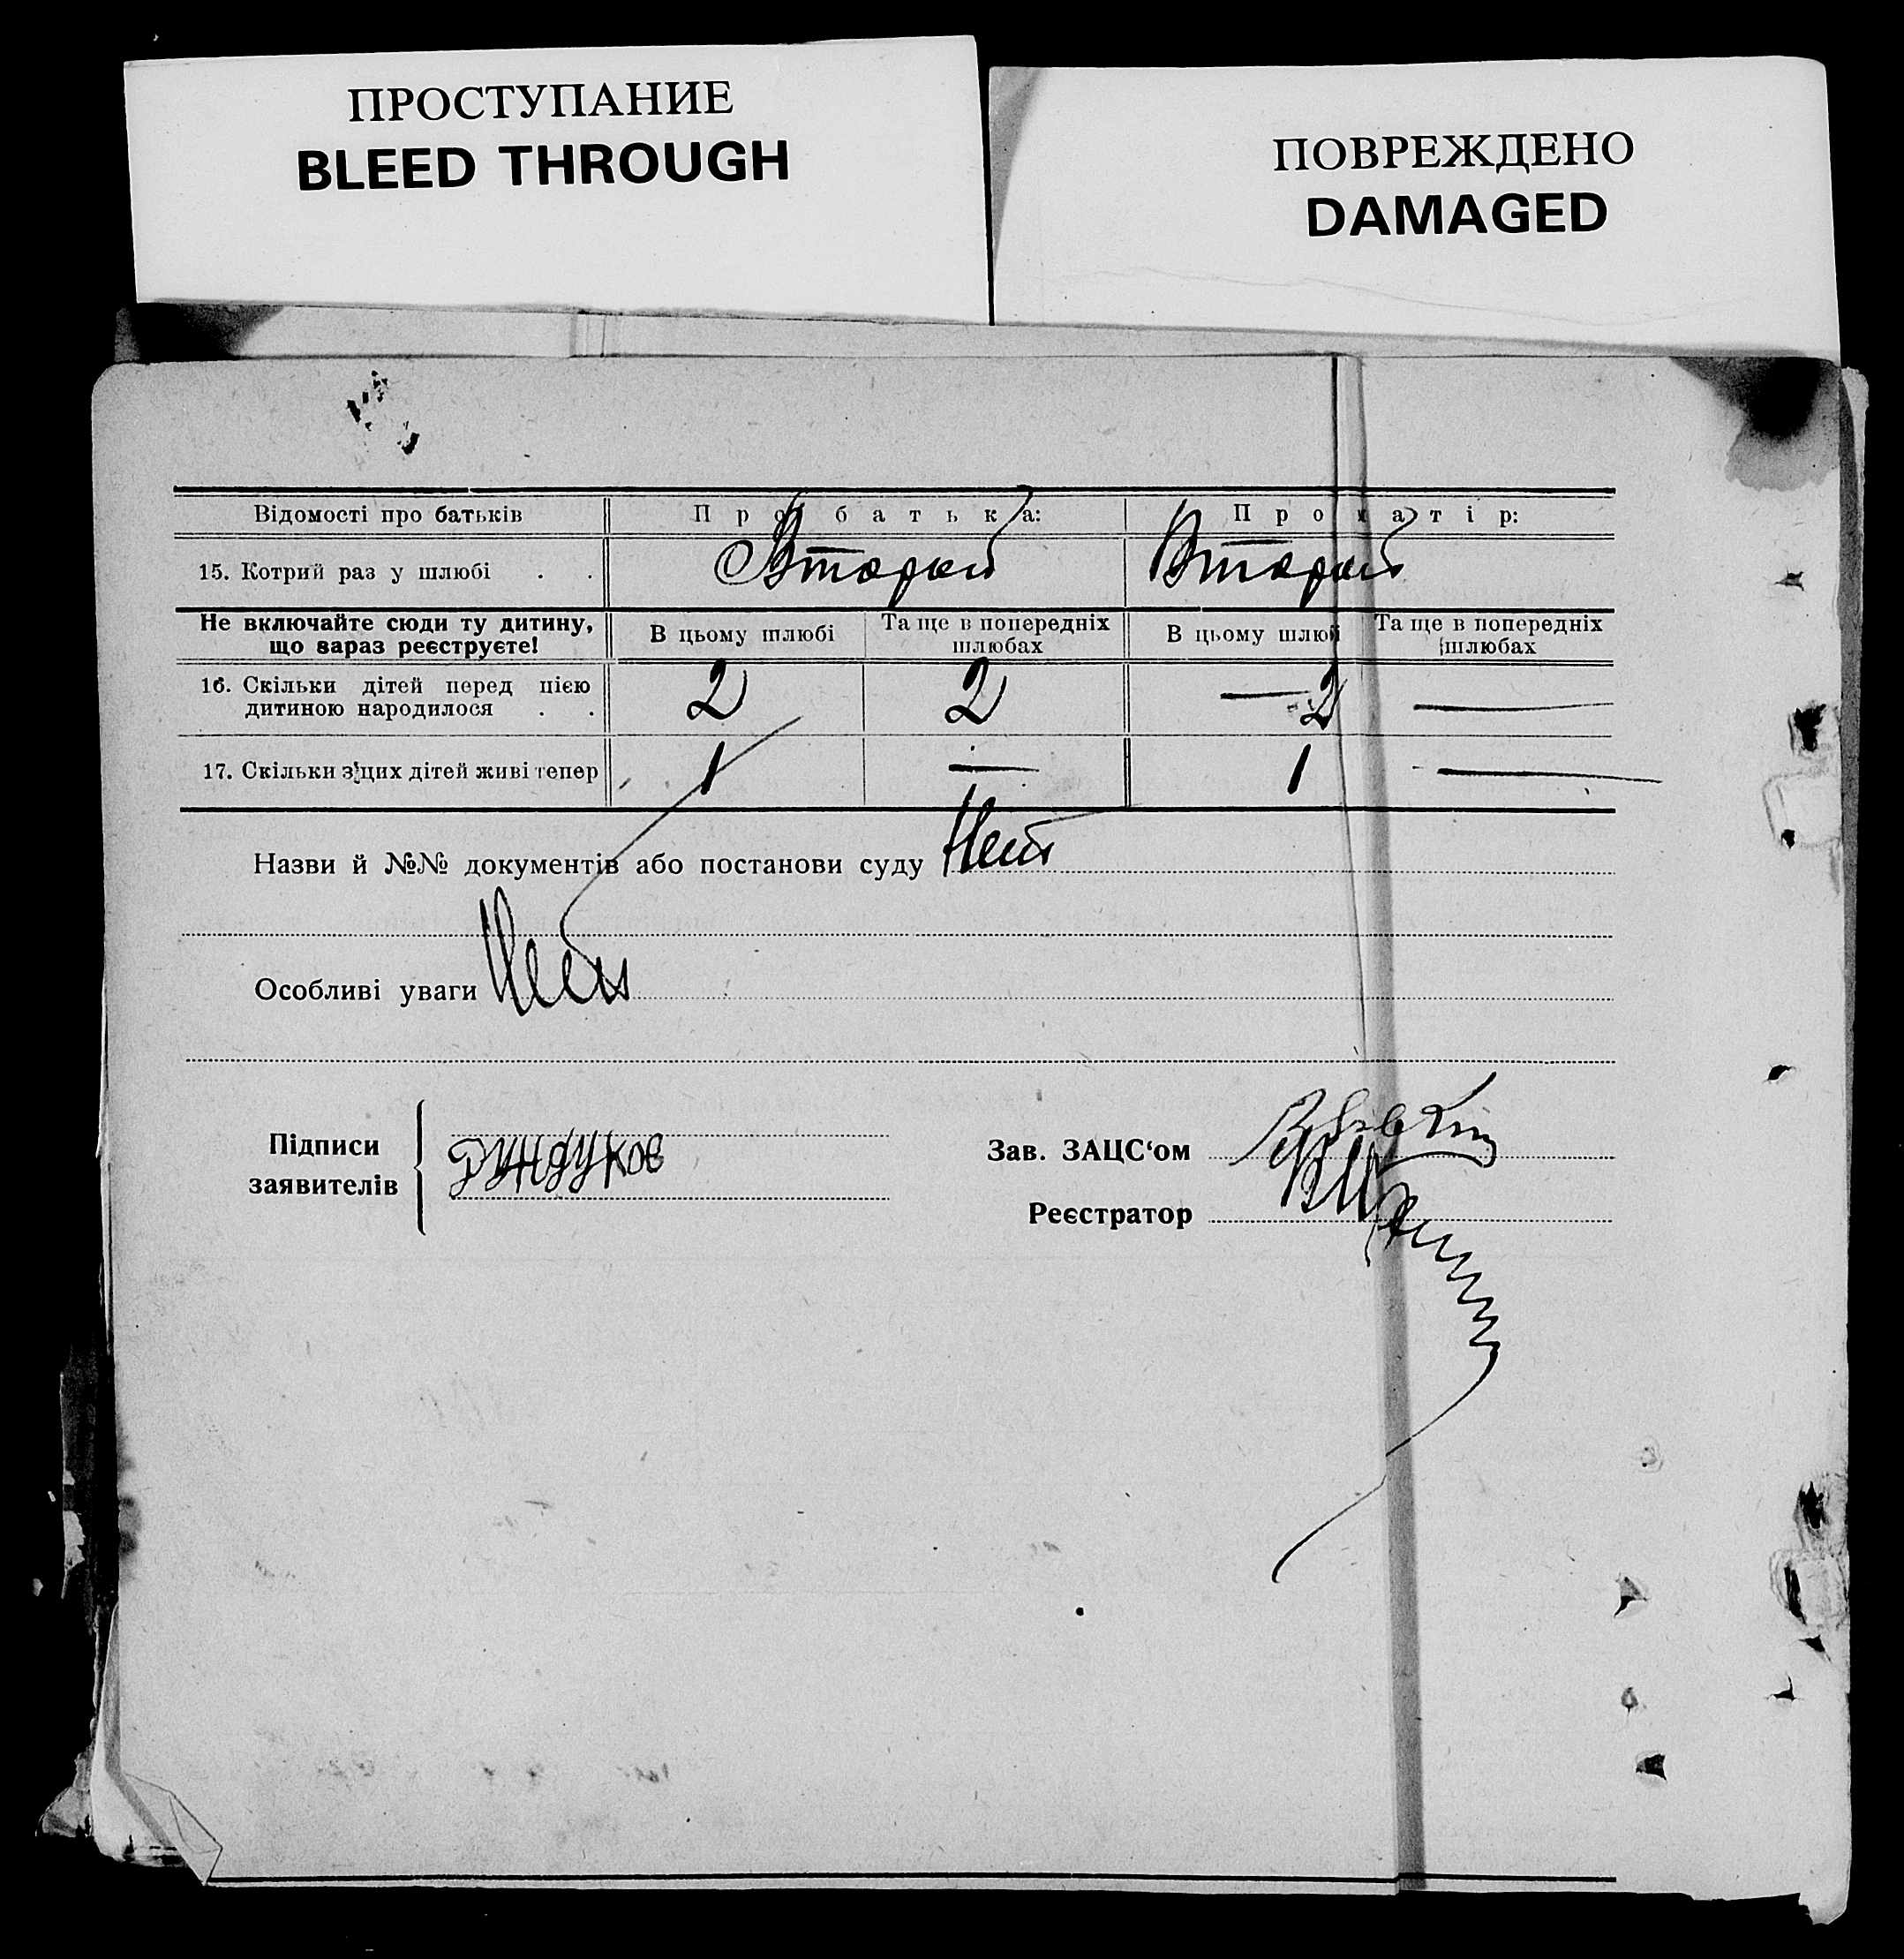 ПРОСТУПАНИЕ
BLEED THROUGH
ПОВРЕЖДЕНО
DAMAGED
Відомості про батьків Про батька: Про матір:
15. Котрий раз у шлюбі . . Второй Второй
Не включайте сюди ту дитину, що зараз реєструєте! В цьому шлюбі Та ще в попередніх шлюбах В цьому шлюбі Та ще в попередніх шлюбах
16. Скільки дітей перед цією дитиною народилося . . 2 2 — 2 —
17. Скільки з цих дітей живі тепер 1 — 1 —
Назви й №№ документів або постанови суду Нет
Особливі уваги Нет
Підписи заявителів
Зав. ЗАЦС‘ом
Реєстратор